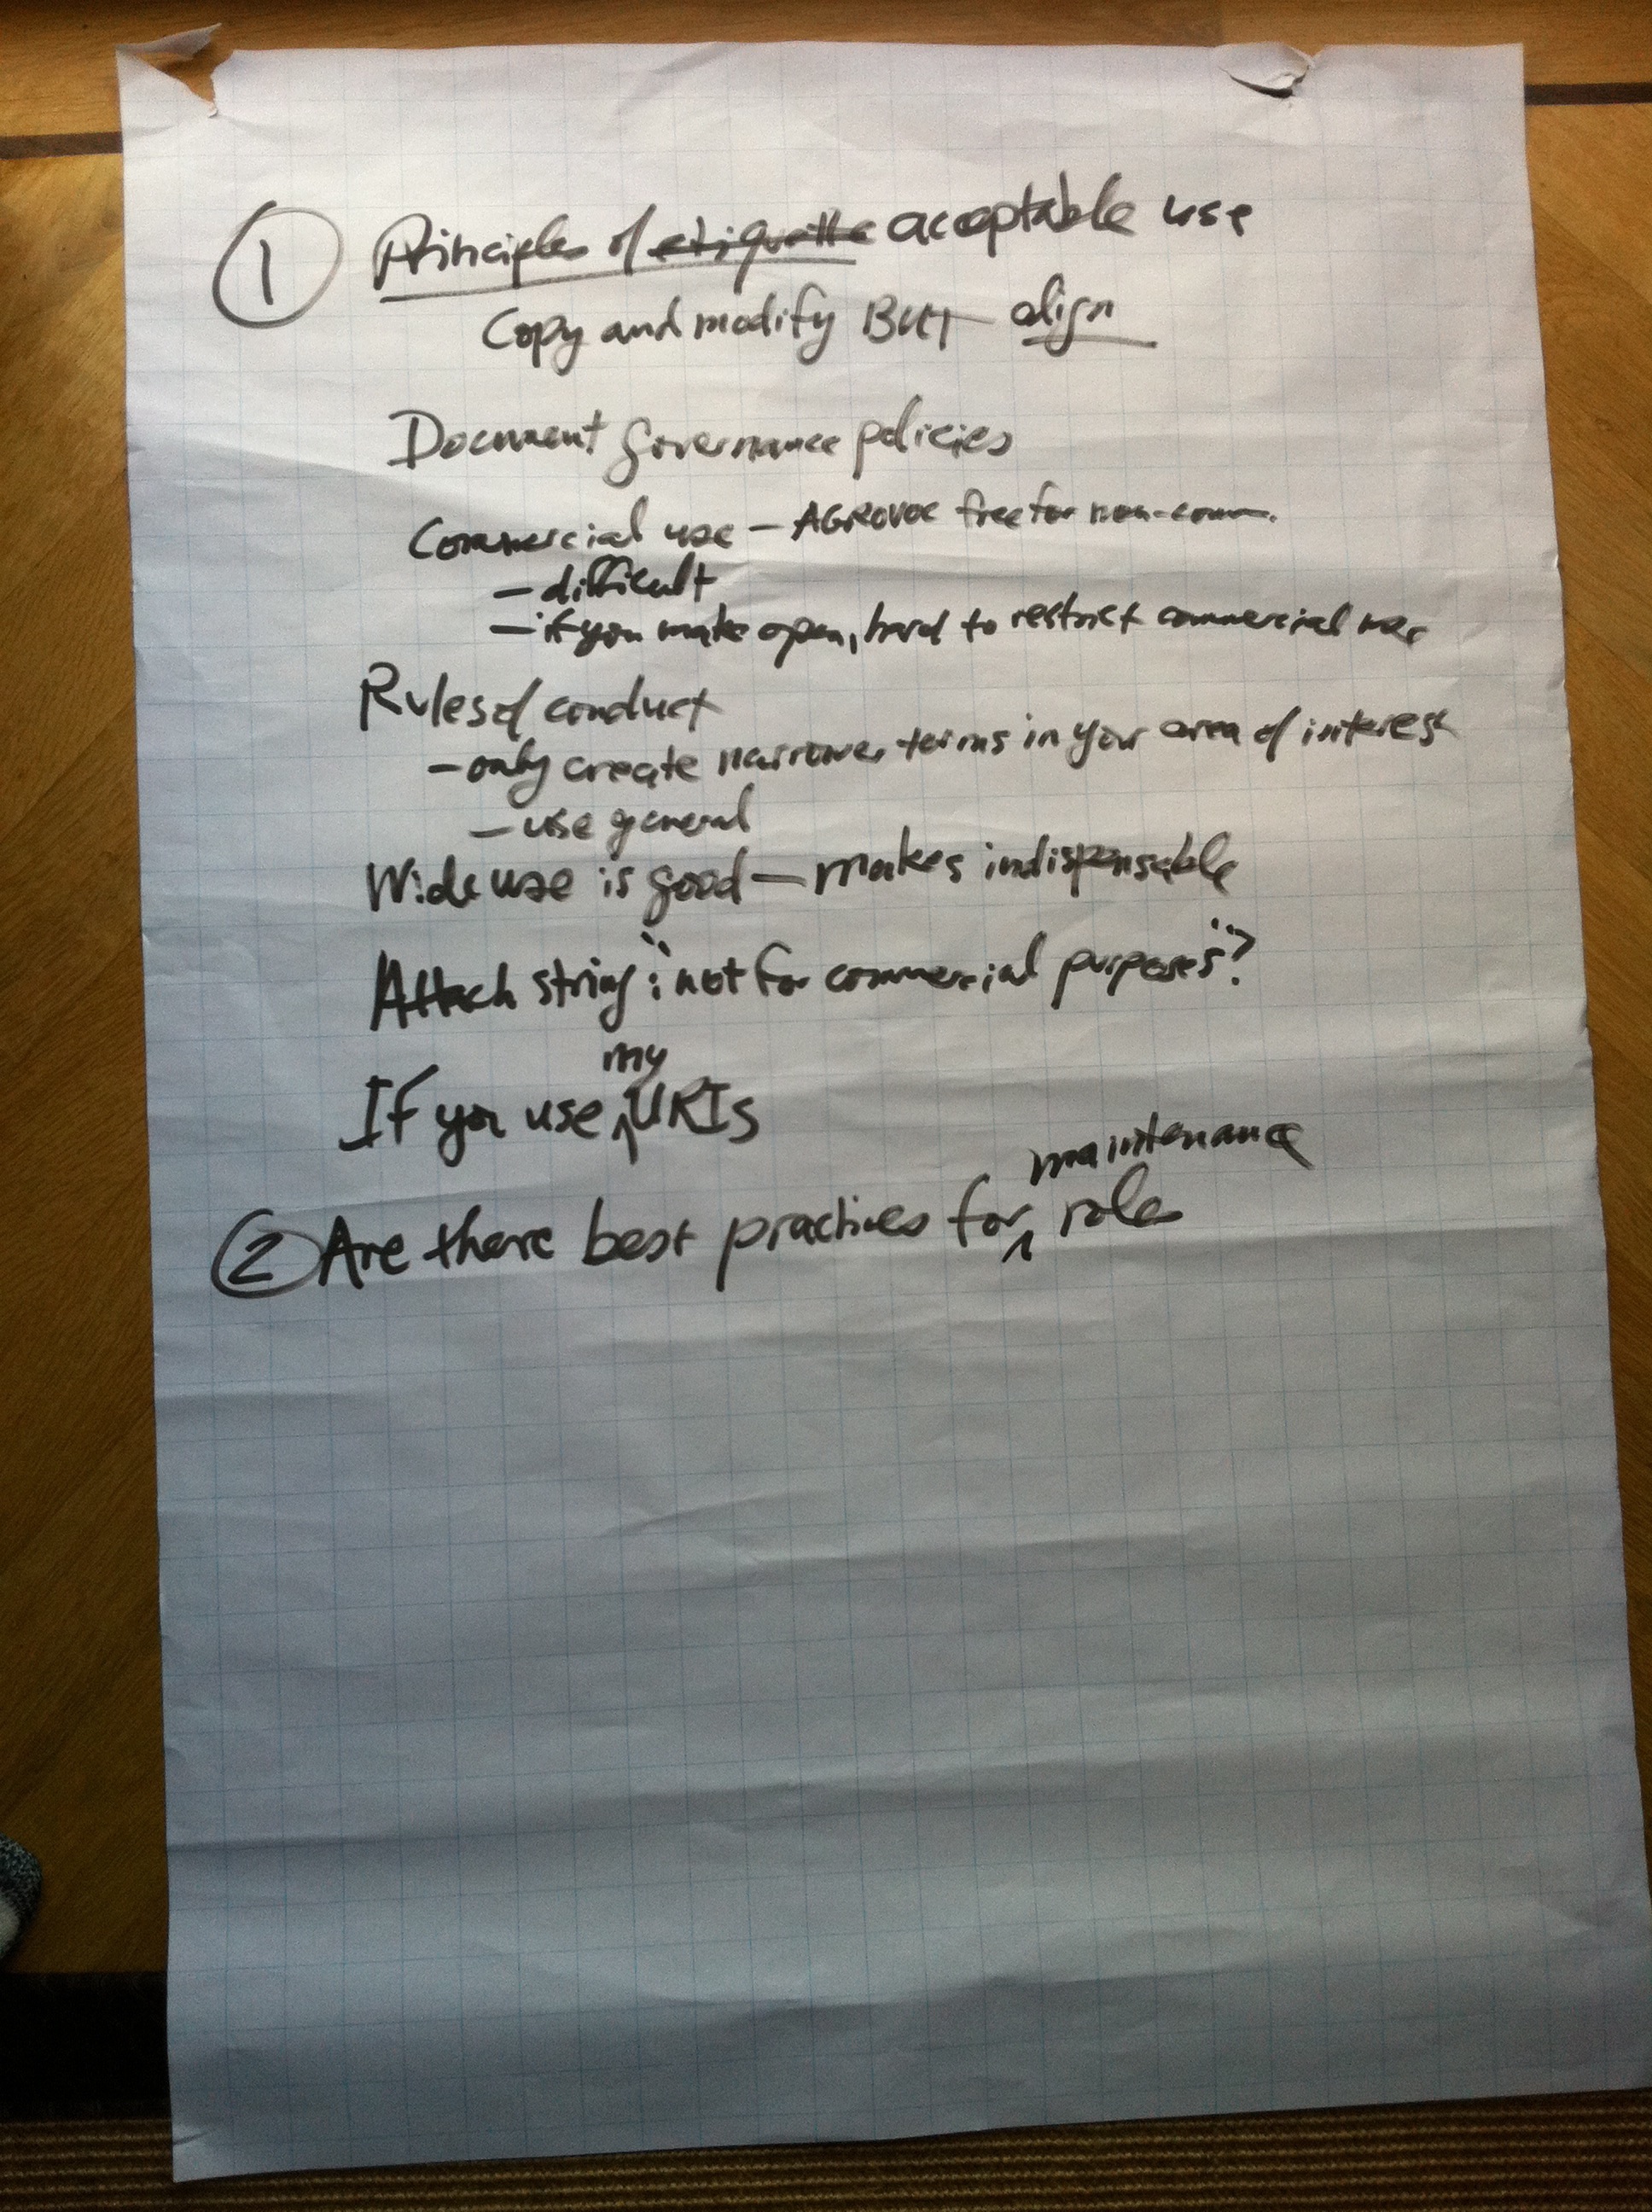 ① Principles of etiquette acceptable use
Copy and modify BUT align
Document governance policies
Commercial use – AGROVOC free for non-comm.
– difficult
– if you make open, hard to restrict commercial use
Rules of conduct
– only create narrower terms in your area of interest
– use general
Wide use is good – makes indispensable
Attach string: "not for commercial purposes"?
If you use my URIs
② Are there best practices for maintenance role